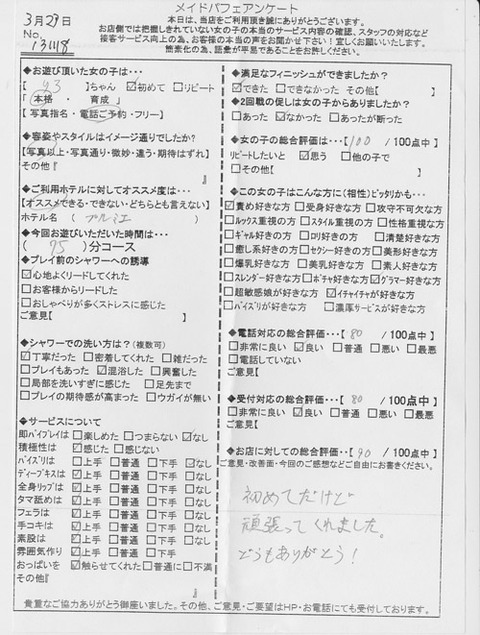 メイドパフェアンケート
3月27日
No.
本日は、当店をご利用頂き誠にありがとうございます。
お店側では把握しきれていない女の子の本当のサービス内容の確認、スタッフの対応など
接客サービス向上の為、お客様の本当の声をお聞かせ下さい!宜しくお願いいたします。
簡素化の為、語彙が平易であることをお許しください。
◆お遊び頂いた女の子は・・・
【 】ちゃん ☑初めて □リピート
「 本格 ・ 育成 」
【 写真指名・電話ご予約・フリー】
◆容姿やスタイルはイメージ通りでしたか?
【写真以上・写真通り・微妙・違う・期待はずれ】
その他『 』
◆ご利用ホテルに対してオススメ度は・・・
【オススメできる・できない・どちらとも言えない】
ホテル名 ( プルミエ )
◆今回お遊びいただいた時間は・・・
( 95 )分コース
◆プレイ前のシャワーへの誘導
☑心地よくリードしてくれた
□お客様からリードした
□おしゃべりが多くストレスに感じた
ご意見【 】
◆シャワーでの洗い方は?(複数可)
☑丁寧だった □密着してくれた □雑だった
□プレイもあった ☑混浴した □興奮した
□局部を洗いすぎに感じた □足先まで
□プレイの期待感が高まった □ウガイが無い
◆サービスについて
即パイプレイは □楽しめた □つまらない ☑なし
積極性は ☑感じた □感じない
パイズリは □上手 □普通 □下手 ☑なし
ディープキスは ☑上手 □普通 □下手 □なし
全身リップは ☑上手 □普通 □下手 □なし
タマ舐めは ☑上手 □普通 □下手 □なし
フェラは ☑上手 □普通 □下手 □なし
手コキは ☑上手 □普通 □下手 □なし
素股は ☑上手 □普通 □下手 □なし
雰囲気作り ☑上手 □普通 □下手 □なし
おっぱいを ☑触らせてくれた □普通に □不満
その他『 』
◆満足なフィニッシュができましたか?
☑できた □できなかった その他【 】
◆2回戦の促しは女の子からありましたか?
□あった ☑なかった □あったが断った
◆女の子の総合評価は・・・【100 /100点中】
リピートしたいと ☑思う □他の子で
□その他【 】
◆この女の子はこんな方に(相性)ピッタリかも・・・
☑責め好きな方 □受身好きな方 □攻守不可欠な方
□ルックス重視の方 □スタイル重視の方 □性格重視な方
□ギャル好きの方 □ロリ好きの方 □清楚好きな方
□癒し系好きの方 □セクシー好きの方 □美形好きな方
□爆乳好きな方 □美乳好きな方 □素人好きな方
□スレンダー好きな方 □ポチャ好きな方 ☑グラマー好きな方
□超敏感娘が好きな方 ☑イチャイチャが好きな方
□パイズリが好きな方 □濃厚サービスが好きな方
◆電話対応の総合評価・・・【80 /100点中】
□非常に良い ☑良い □普通 □悪い □最悪
□電話していない
ご意見【
◆受付対応の総合評価・・・【80 /100点中】
□非常に良い ☑良い □普通 □悪い □最悪
ご意見【
◆お店に対しての総合評価・・・【90 /100点中】
ご意見・改善面・今回のご感想などご自由にお書きください。
初めてだけど
頑張ってくれました。
どうもありがとう!
貴重なご協力ありがとう御座いました。その他、ご意見・ご要望はHP・お電話にても受付しております。